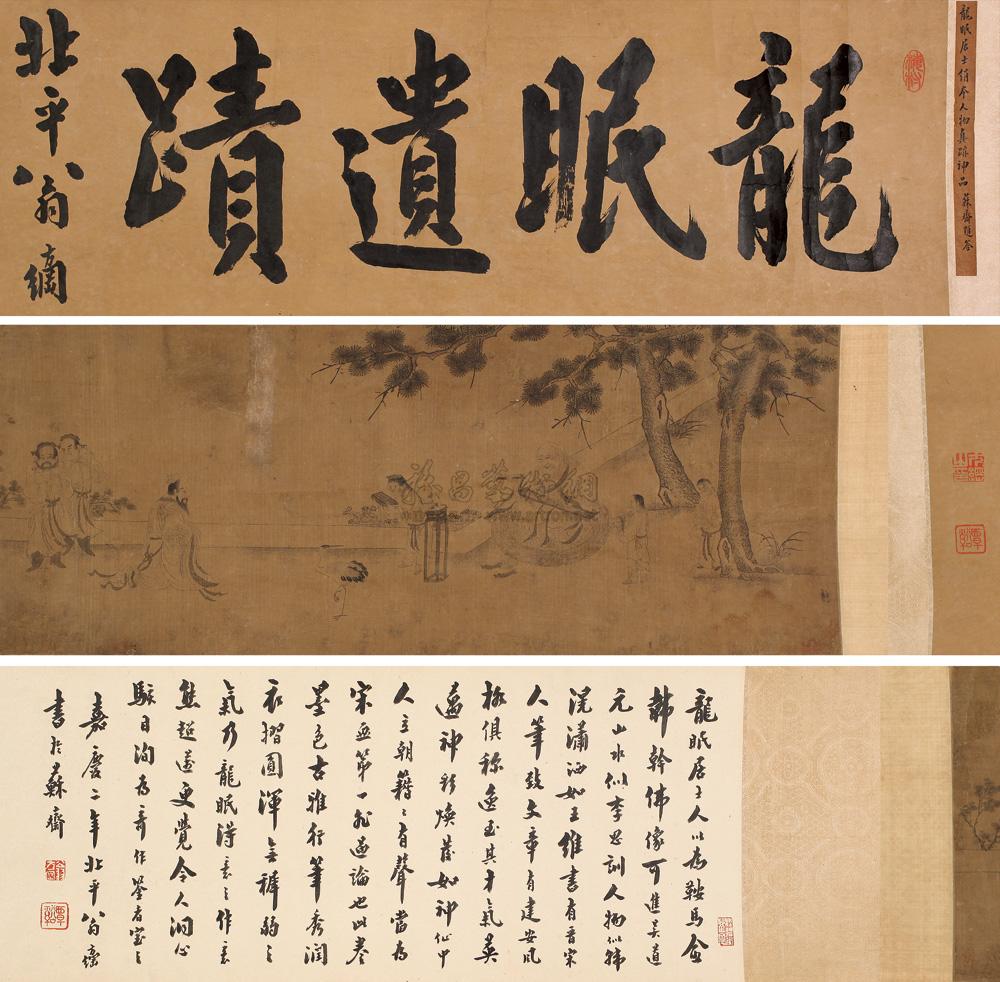 龍眠居士絹本人物真跡神品 蘇齋題簽
龍眠遺蹟
北平翁方綱
龍眠居士人以為鞍馬逾
韩幹佛像可進吳道
元山水似李思訓人物似韩
滉瀟洒如王維書有晋宋
人筆致文章有建安風
格俱称逸玉其才氣英
邁神彩煥發如神仙中
人立朝籍籍有聲當為
宋画第一非過論也此卷
墨色古雅行筆秀潤
衣摺圓渾無裤弱之
氣乃龍眠得意之作意
態超遠更覺令人洞心
駭目洵為奇作鑒者宝之
嘉慶二年北平翁方綱
書於蘇齋